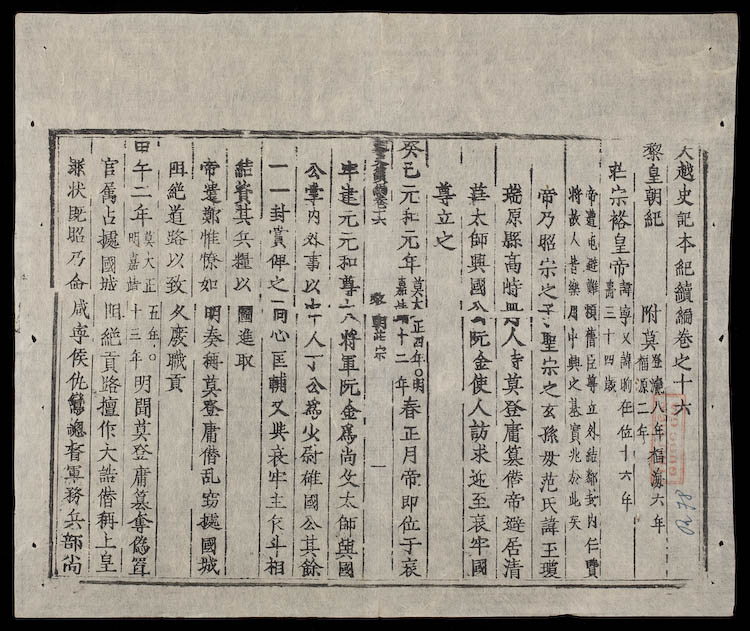 大越史記本紀續編卷之十六
黎皇朝紀 附莫登瀛八年福海六年福源二年
莊宗裕皇帝 諱寧又諱昫在位十六年壽三十四歲
帝遭屯避難賴舊臣尊立外結鄰封內仁賢
將故人昔樂用中興之基實兆於此矣
帝乃昭宗之子聖宗之玄孫母范氏諱玉瓊
瑞原縣高峙冊人時莫登庸篡僭帝避居清
華太師興國公阮金使人訪求迎至哀牢國
尊立之
癸巳元和元年 莫大正四年○明嘉靖十二年 春正月帝即位于哀
牢建元元和尊大將軍阮金為尚父太師興國
公掌內外事以中人丁公為少尉雄國公其餘
一一封賞俾之同心匡輔又與哀牢主乍斗相
結資其兵糧以圖進取
帝遣鄭惟憭如明奏稱莫登庸僭乱竊據國城
阻絕道路以致久廢職貢
甲午二年 莫大正五年○明嘉靖十三年 明聞莫登庸篡奪偽置
官属占據國城阻絕貢路擅作大誥僭稱上皇
罪状既昭乃命咸寧侯仇鸞總督軍務兵部尚
莊宗
一